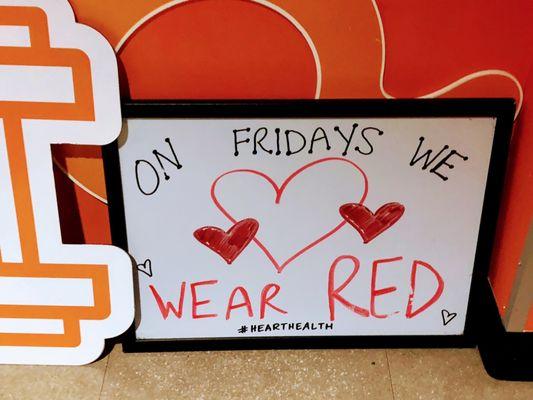 ON FRIDAYS WE
WEAR RED
#HEARTHEALTH